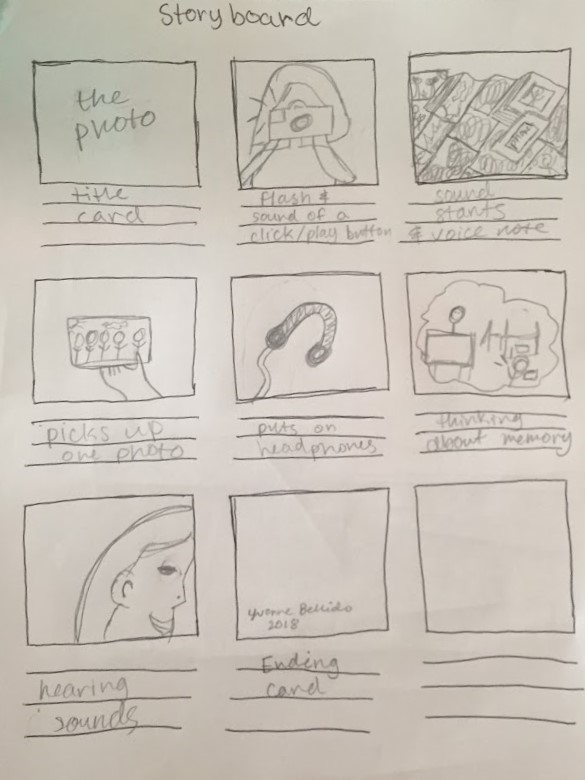 Story board
the
photo
title
card
flash &
sound of a
click/play button
sound
starts
& voice note
picks up
one photo
puts on
headphones
thinking
about memory
hearing
sounds
Yvonne Bellido
2018
Ending
card